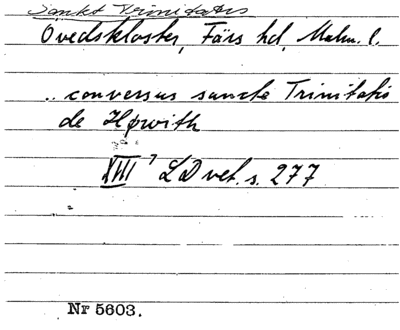 Sankt Trinitatis
Övedskloster, Färs hd, Malm. l.
.. conversus sancte Trinitatis
de Høwith
XIII LD vet. s. 277
Nr 5603.